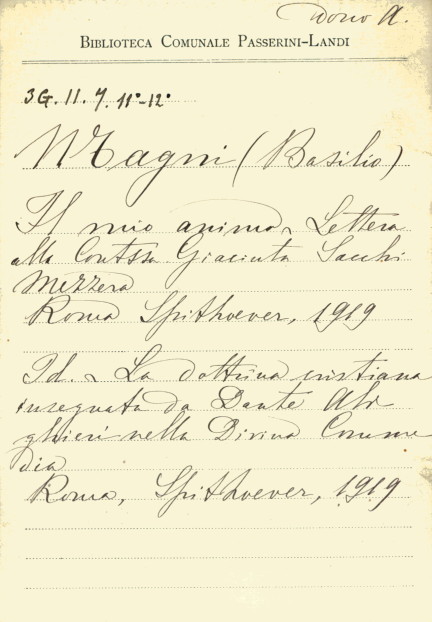 Dono A.
BIBLIOTECA COMUNALE PASSERINI-LANDI
3G. II. 7. 11°-12°
Magni (Basilio)
Il mio animo - Lettera
alla Contssa Giacinta Sacchi
Mezzera
Roma Spithoever, 1919
Id. - La dottrina cristiana
insegnata da Dante Ali
ghieri nella Divina Comme
dia
Roma, Spithoever, 1919